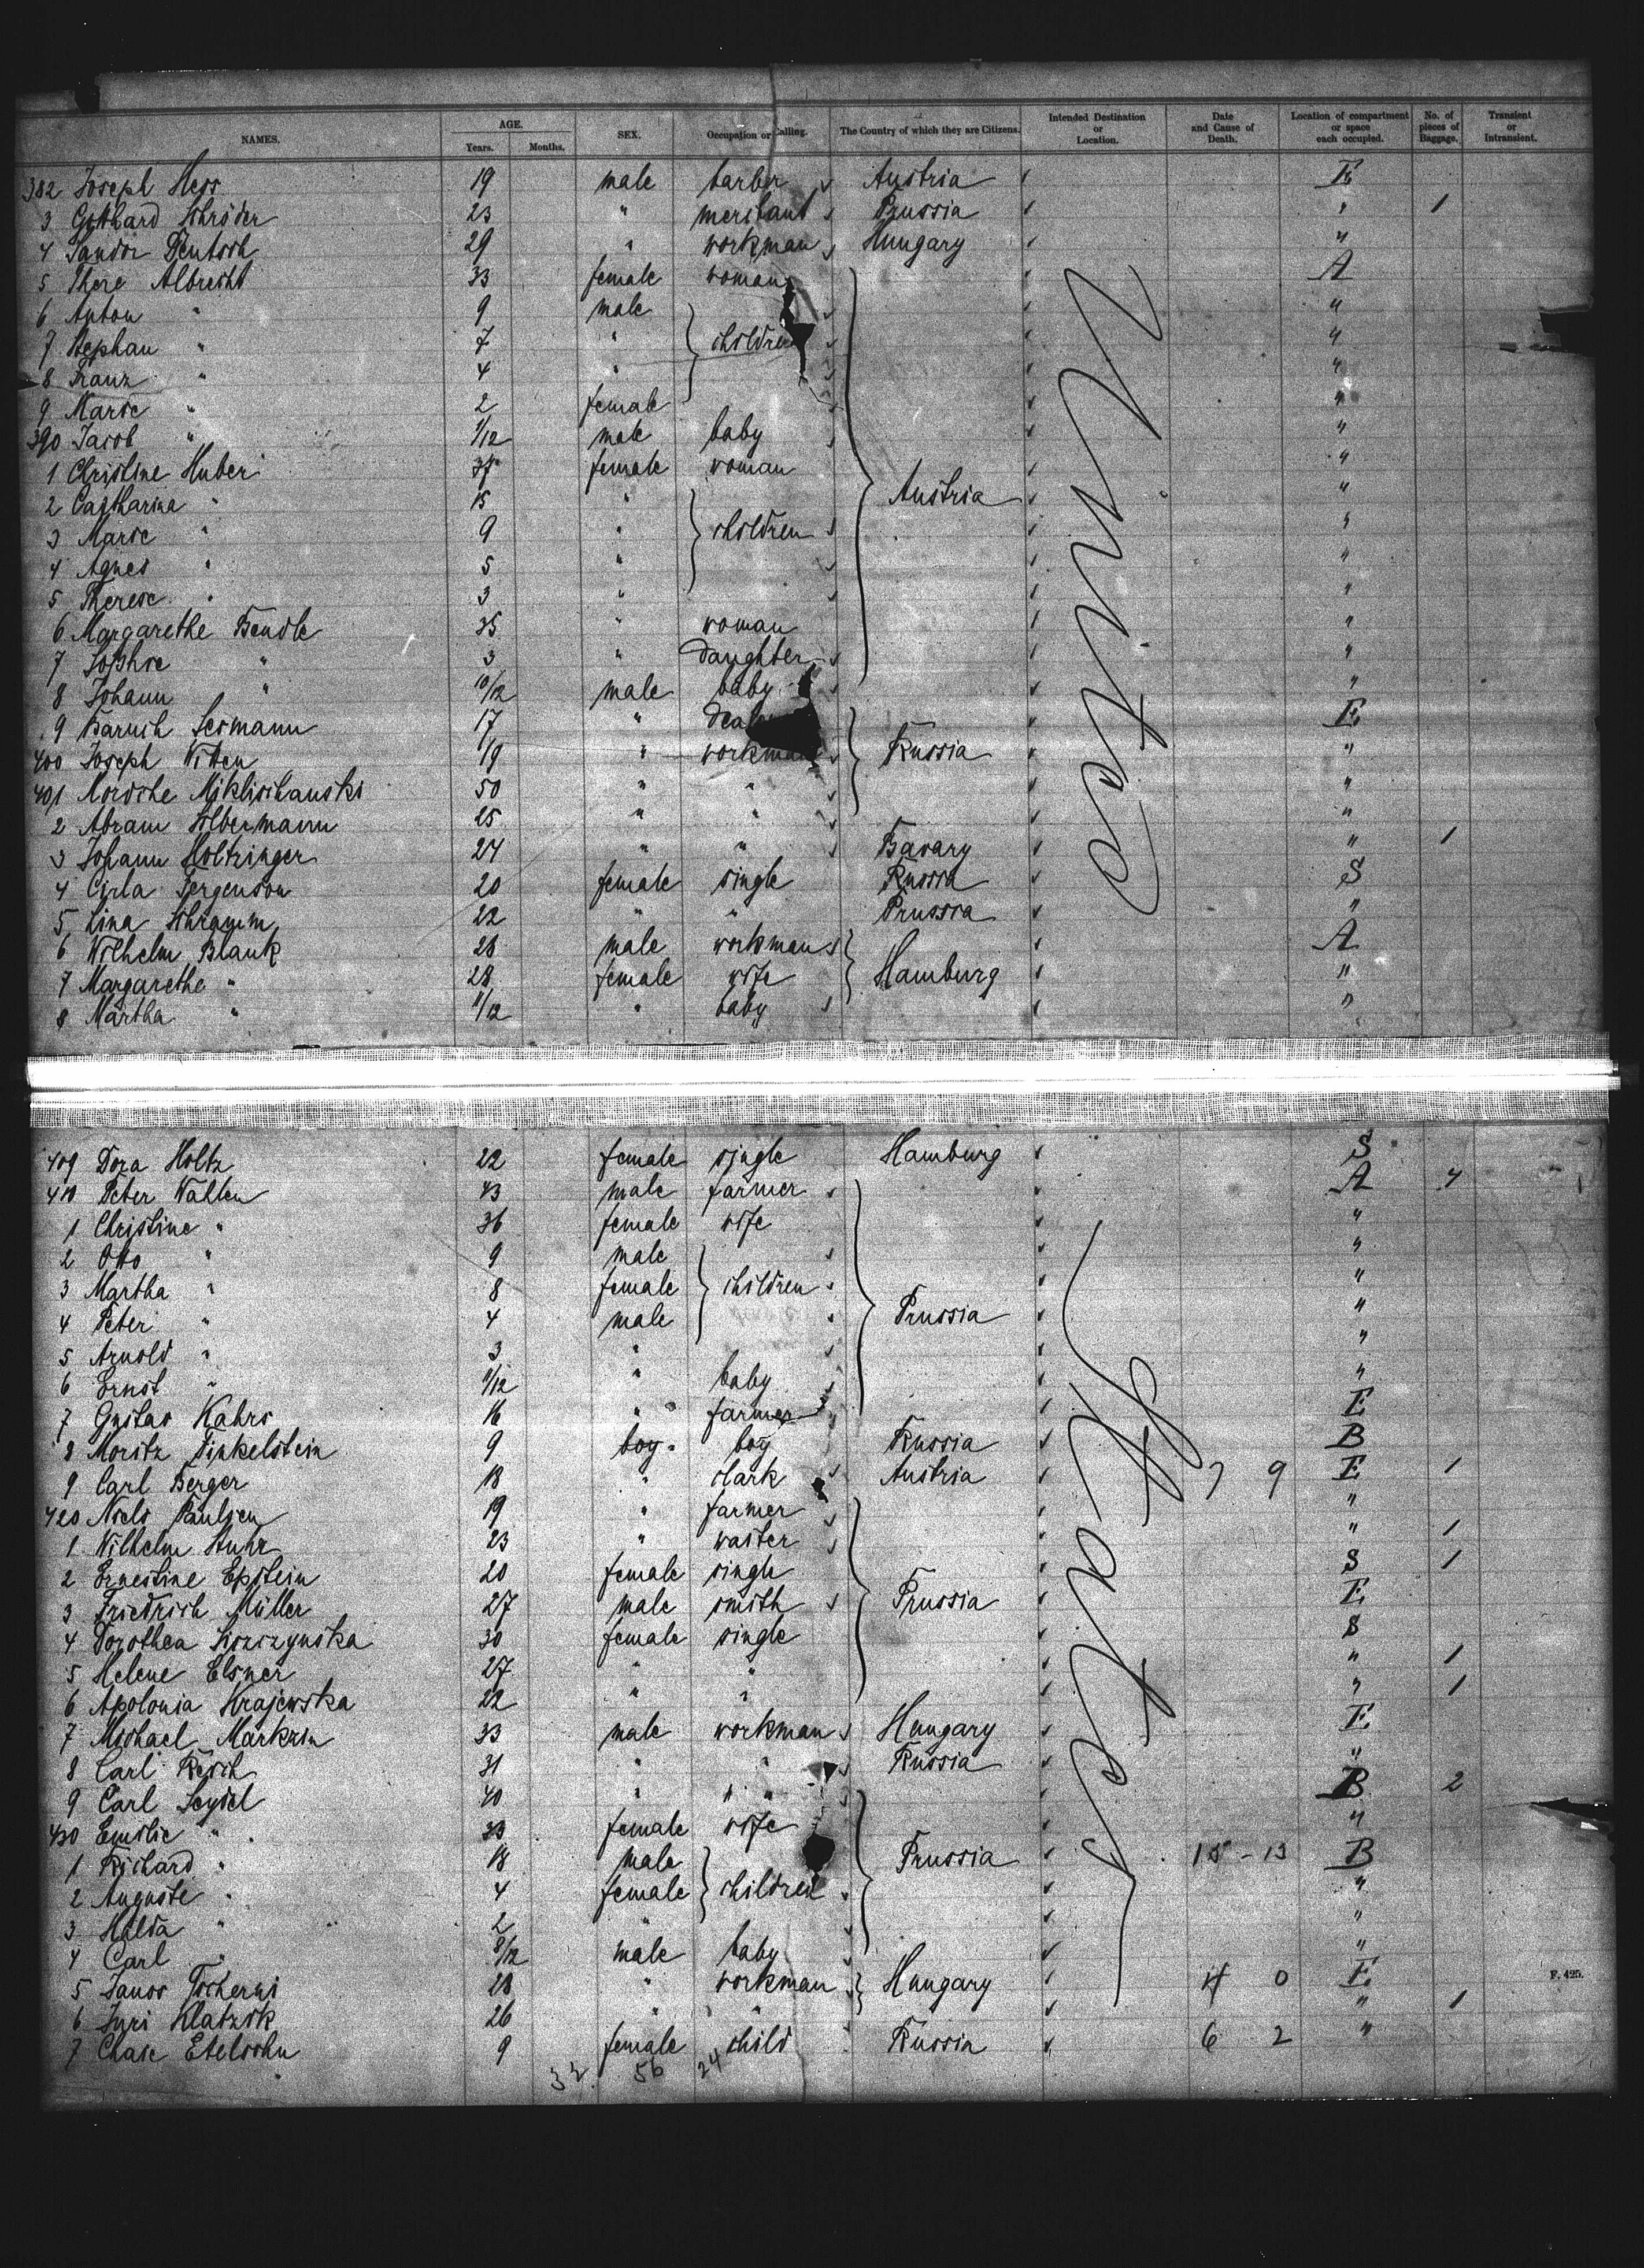 NAMES. AGE. Years. Months. SEX. Occupation or Calling. The Country of which they are Citizens. Intended Destination or Location. Date and Cause of Death. Location of compartment or space each occupied. No. of pieces of Baggage. Transient or Intransient.
382 Joseph Hess 19 male barber Austria E
3 Gotthard Schröder 23 " merchant Prussia " 1
4 Sandor Deutsch 29 " workman Hungary "
5 There Albrecht 33 female woman A
6 Anton " 9 male "
7 Stephan " 7 " children "
8 Franz " 4 " "
9 Marie " 2 female "
390 Jacob " 1/12 male baby "
1 Christine Huber 37 female woman "
2 Catharina " 15 " Austria "
3 Marie " 9 " children "
4 Agnes " 5 " "
5 Therese " 3 " "
6 Margarethe Bendle 35 " woman "
7 Sophie " 3 " daughter "
8 Johann " 10/12 male baby "
9 Baruch 17 " E
400 Joseph Witen 19 " workman Russia "
401 Mordche Miklischanski 50 " " "
2 Abram Silbermann 25 " " "
3 Johann Holzinger 24 " " Bavary " 1
4 Cirla Jergenson 20 female single Russia S
5 Lina Schramm 22 " " Prussia "
6 Wilhelm Blank 28 male workman A
7 Margarethe " 28 female wife Hamburg "
8 Martha " 11/12 " baby "
409 Dora Holtz 22 female single Hamburg S
410 Peter Wahlen 43 male farmer A 4
1 Christine " 36 female wife "
2 Otto " 9 male "
3 Martha " 8 female children "
4 Peter " 4 male Prussia "
5 Arnold " 3 " "
6 Ernst " 11/12 " baby "
7 Gustav Kahrs 16 " farmer E
8 Moritz Finkelstein 9 boy boy Russia B
9 Carl Berger 18 " clark Austria 7 9 E 1
420 Niels Paulsen 19 " farmer "
1 Wilhelm Stuhr 23 " waiter " 1
2 Ernestine Epstein 20 female single S 1
3 Friedrich Müller 27 male smith Prussia E
4 Dorothea 30 female single S
5 Helene Elsner 27 " " " 1
6 Apolonia Krajewska 22 " " " 1
7 Michael Markzin 33 male workman Hungary E
8 Carl Resch 31 " " Russia "
9 Carl Seydel 40 " " B 2
430 Emilie " 33 female wife "
1 Richard " 18 male Prussia 15 - 13 B
2 Auguste " 4 female children "
3 Hulda " 2 " "
4 Carl " 8/12 male baby "
5 Janos Tscherni 28 " workman Hungary 4 0 E
6 Juri Klatzik 26 " " " 1
7 Chaie Etelsohn 9 female child Russia 6 2 "
32. 56 24
F. 425.